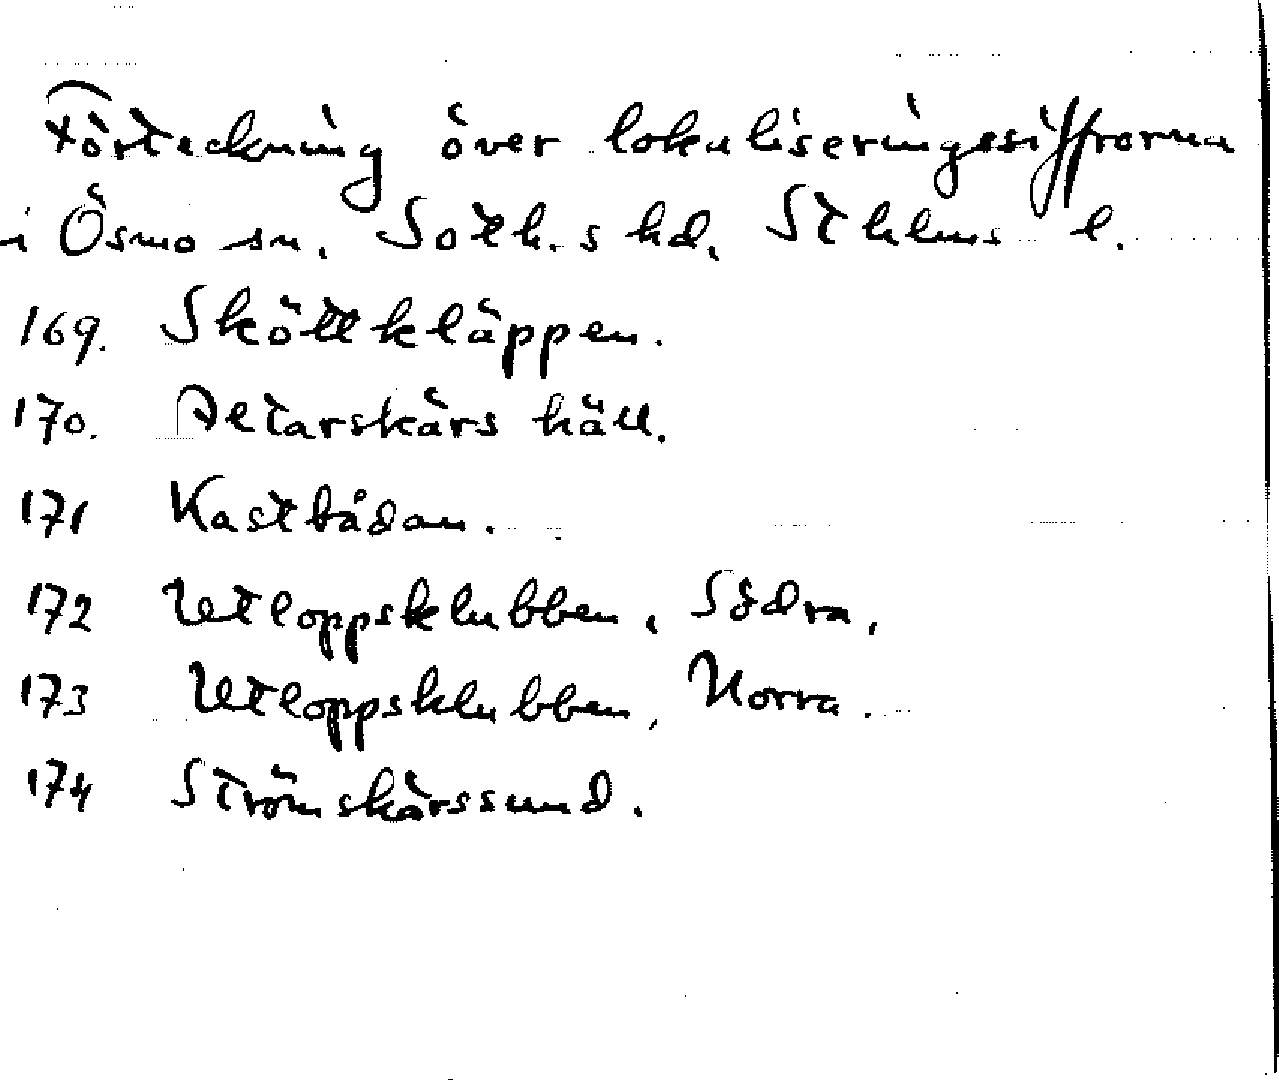 Förteckning över lokaliseringssiffrorna
i Ösmo sn. Soth.s hd. Sthlms l.
169. Sköttkläppen.
170. Petarskärs häll.
171 Kastbådan.
172 Utloppsklubben, Södra.
173 Utloppsklubben, Norra.
174 Strömskärssund.